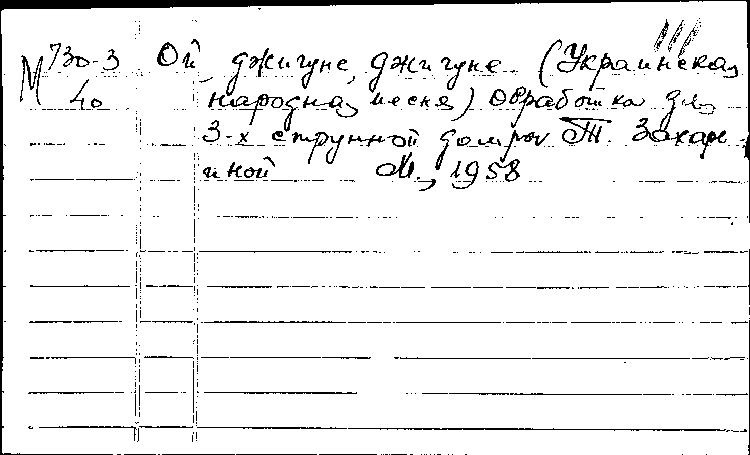 М 730-3 Ой, джигуне, джигуне (Украинская
40 народная песня) Обработка для
3-х струнной домры Т. Захарь
иной М., 1958